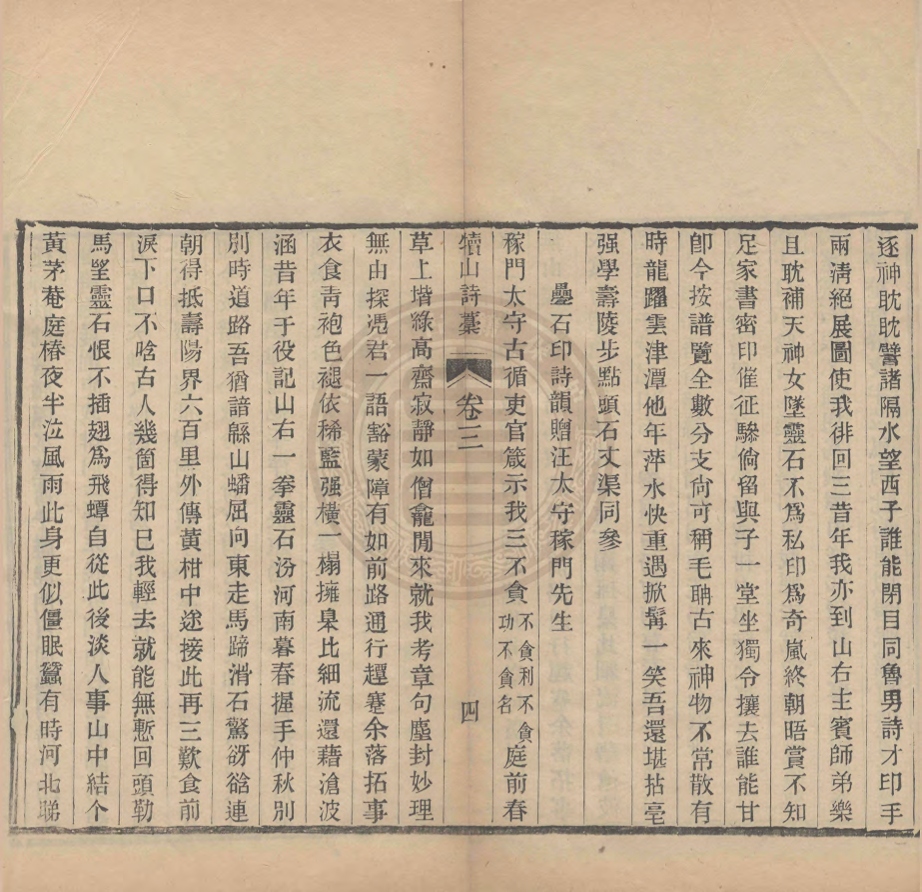 逐神耽耽譬諸隔水望西子誰能閉目同魯男詩才印手
兩淸絕展圖使我徘回三昔年我亦到山右主賓師弟樂
且耽補天神女墜靈石不爲私印爲奇嵐終朝晤賞不知
足家書密印催征驂倘留與子一堂坐獨令攘去誰能甘
卽今按譜覽全數分支尙可稱毛聃古來神物不常散有
時龍躍雲津潭他年萍水快重遇掀髯一笑吾還堪拈毫
强學壽陵步點頭石丈渠同參
疊石印詩韻贈汪太守稼門先生
稼門太守古循吏官箴示我三不貪不貪利不貪功不貪名庭前春
犢山詩藁 卷三 四
草上堦綠高齋寂靜如僧龕閒來就我考章句塵封妙理
無由探慿君一語豁蒙障有如前路通行趯蹇余落拓事
衣食靑袍色褪依稀藍强橫一榻擁臯比細流還藉滄波
涵昔年于役記山右一拳靈石汾河南暮春握手仲秋別
別時道路吾猶諳緜山蟠屈向東走馬蹄滑石驚谺谽連
朝得抵壽陽界六百里外傳黃柑中途接此再三歎食前
淚下口不唅古人幾箇得知巳我輕去就能無慙回頭勒
馬望靈石恨不插翅爲飛蟫自從此後淡人事山中結个
黃茅菴庭椿夜半泣風雨此身更似僵眠蠶有時河北睇